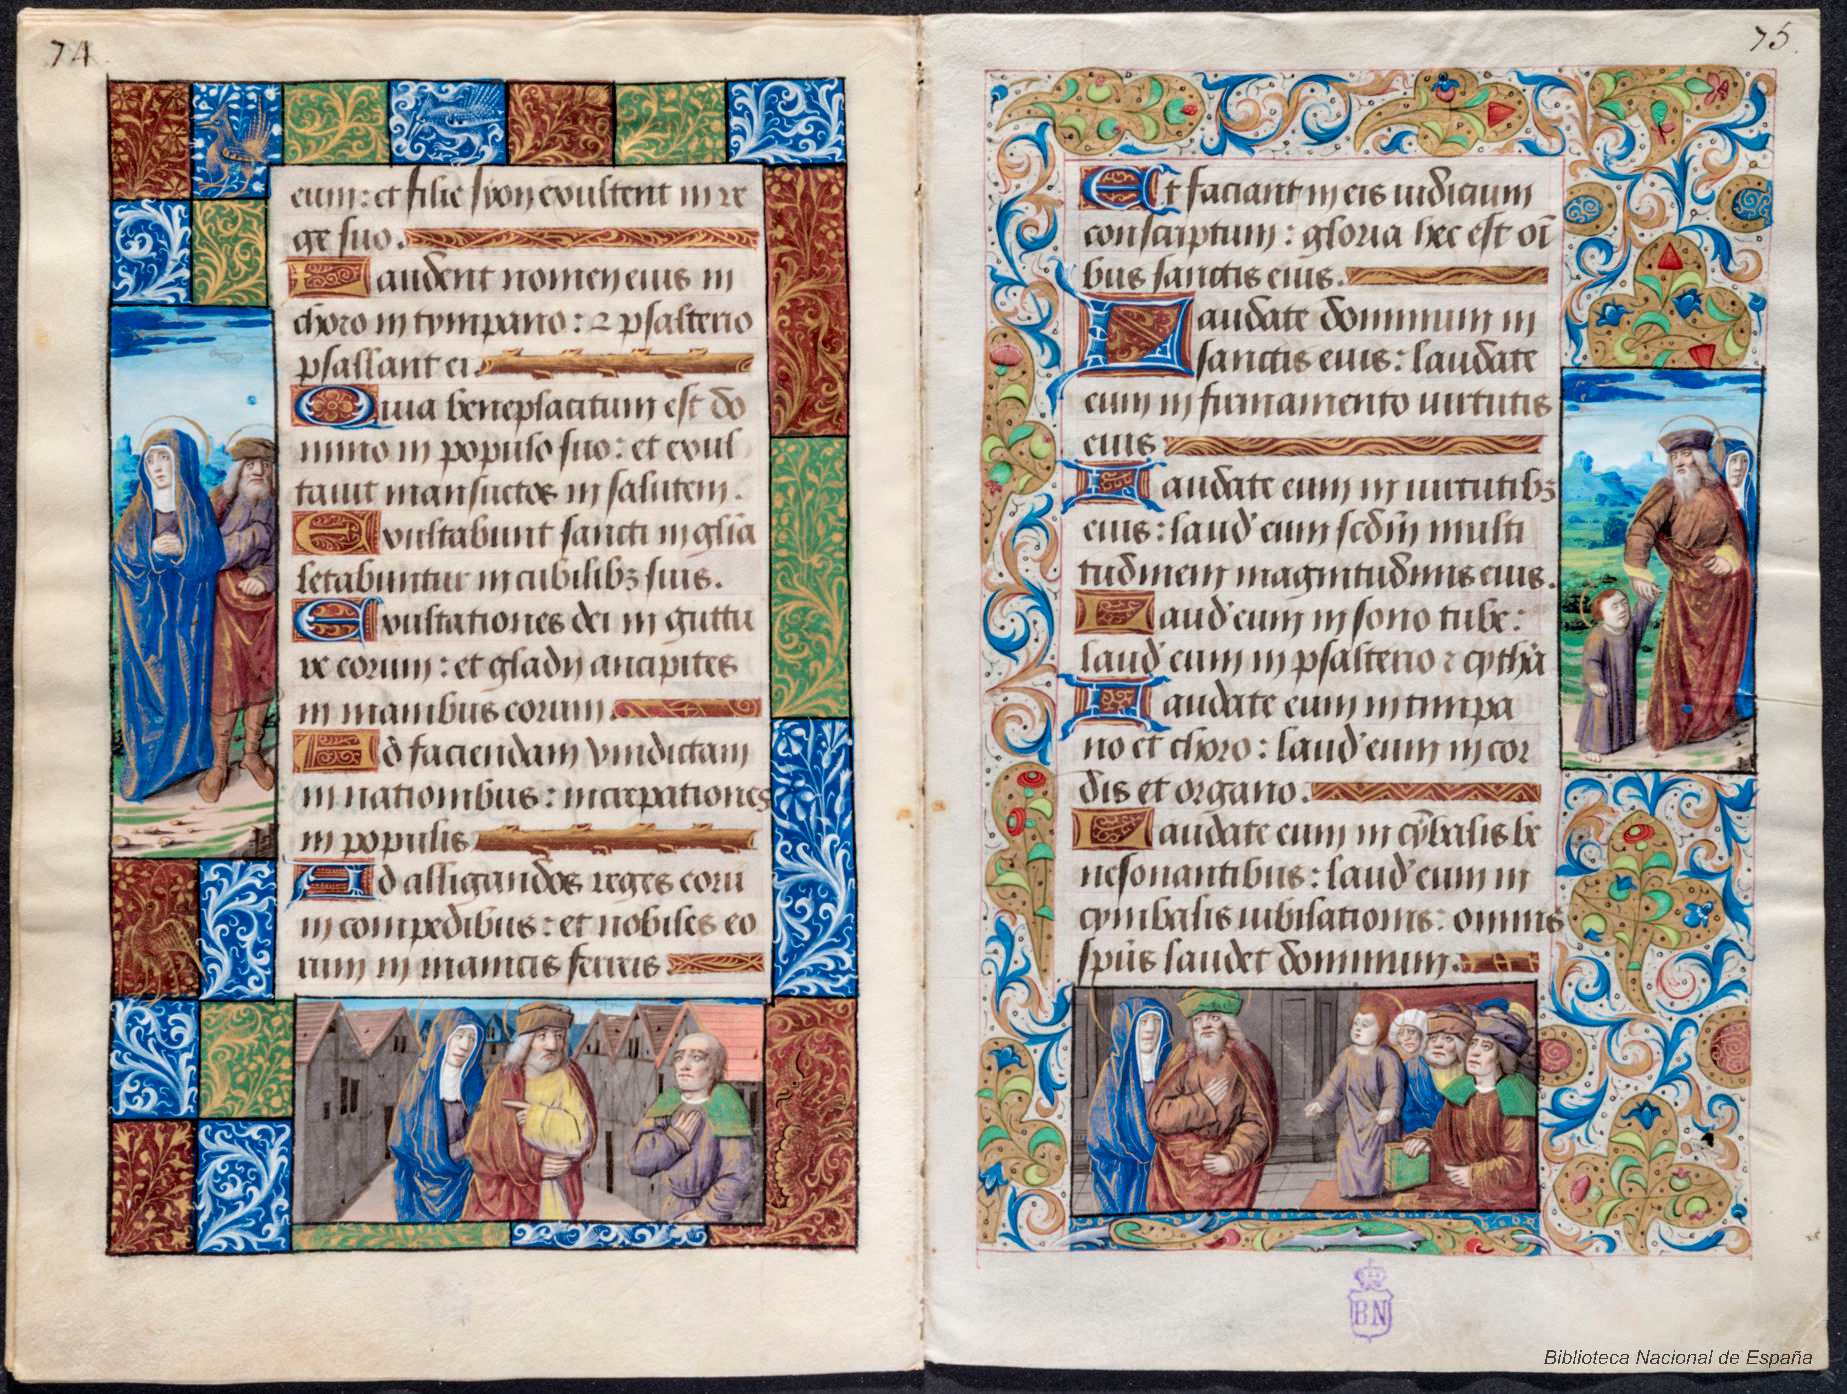 74
eum: et filie syon exultent in re
ge suo.
Laudent nomen eius in
choro in tympano: et psalterio
psallant ei.
Quia beneplacitum est do
mino in populo suo: et exul
tauit mansuetos in salutem.
Exultabunt sancti in glīa
letabuntur in cubilibꝫ suis.
Exultationes dei in guttu
re eorum: et gladii ancipites
in manibus eorum.
Ad faciendam vindictam
in nationibus: increpationes
in populis
Ad alligandos reges eorū
in compedibus: et nobiles eo
rum in manicis ferreis.
75.
Et faciant in eis iudicium
conscriptum: gloria hec est oī
bus sanctis eius.
Laudate dominum in
sanctis eius: laudate
eum in firmamento uirtutis
eius
Laudate eum in uirtutibꝫ
eius: laud' eum scd̄m multi
tudinem magnitudinis eius.
Laud' eum in sono tube:
laud' eum in psalterio ⁊ cythā
Laudate eum in timpa
no et choro: laud' eum in cor
dis et organo.
Laudate eum in cȳbalis be
nesonantibus: laud' eum in
cymbalis iubilationis: omnis
sp̄us laudet dominum.
BN
Biblioteca Nacional de España